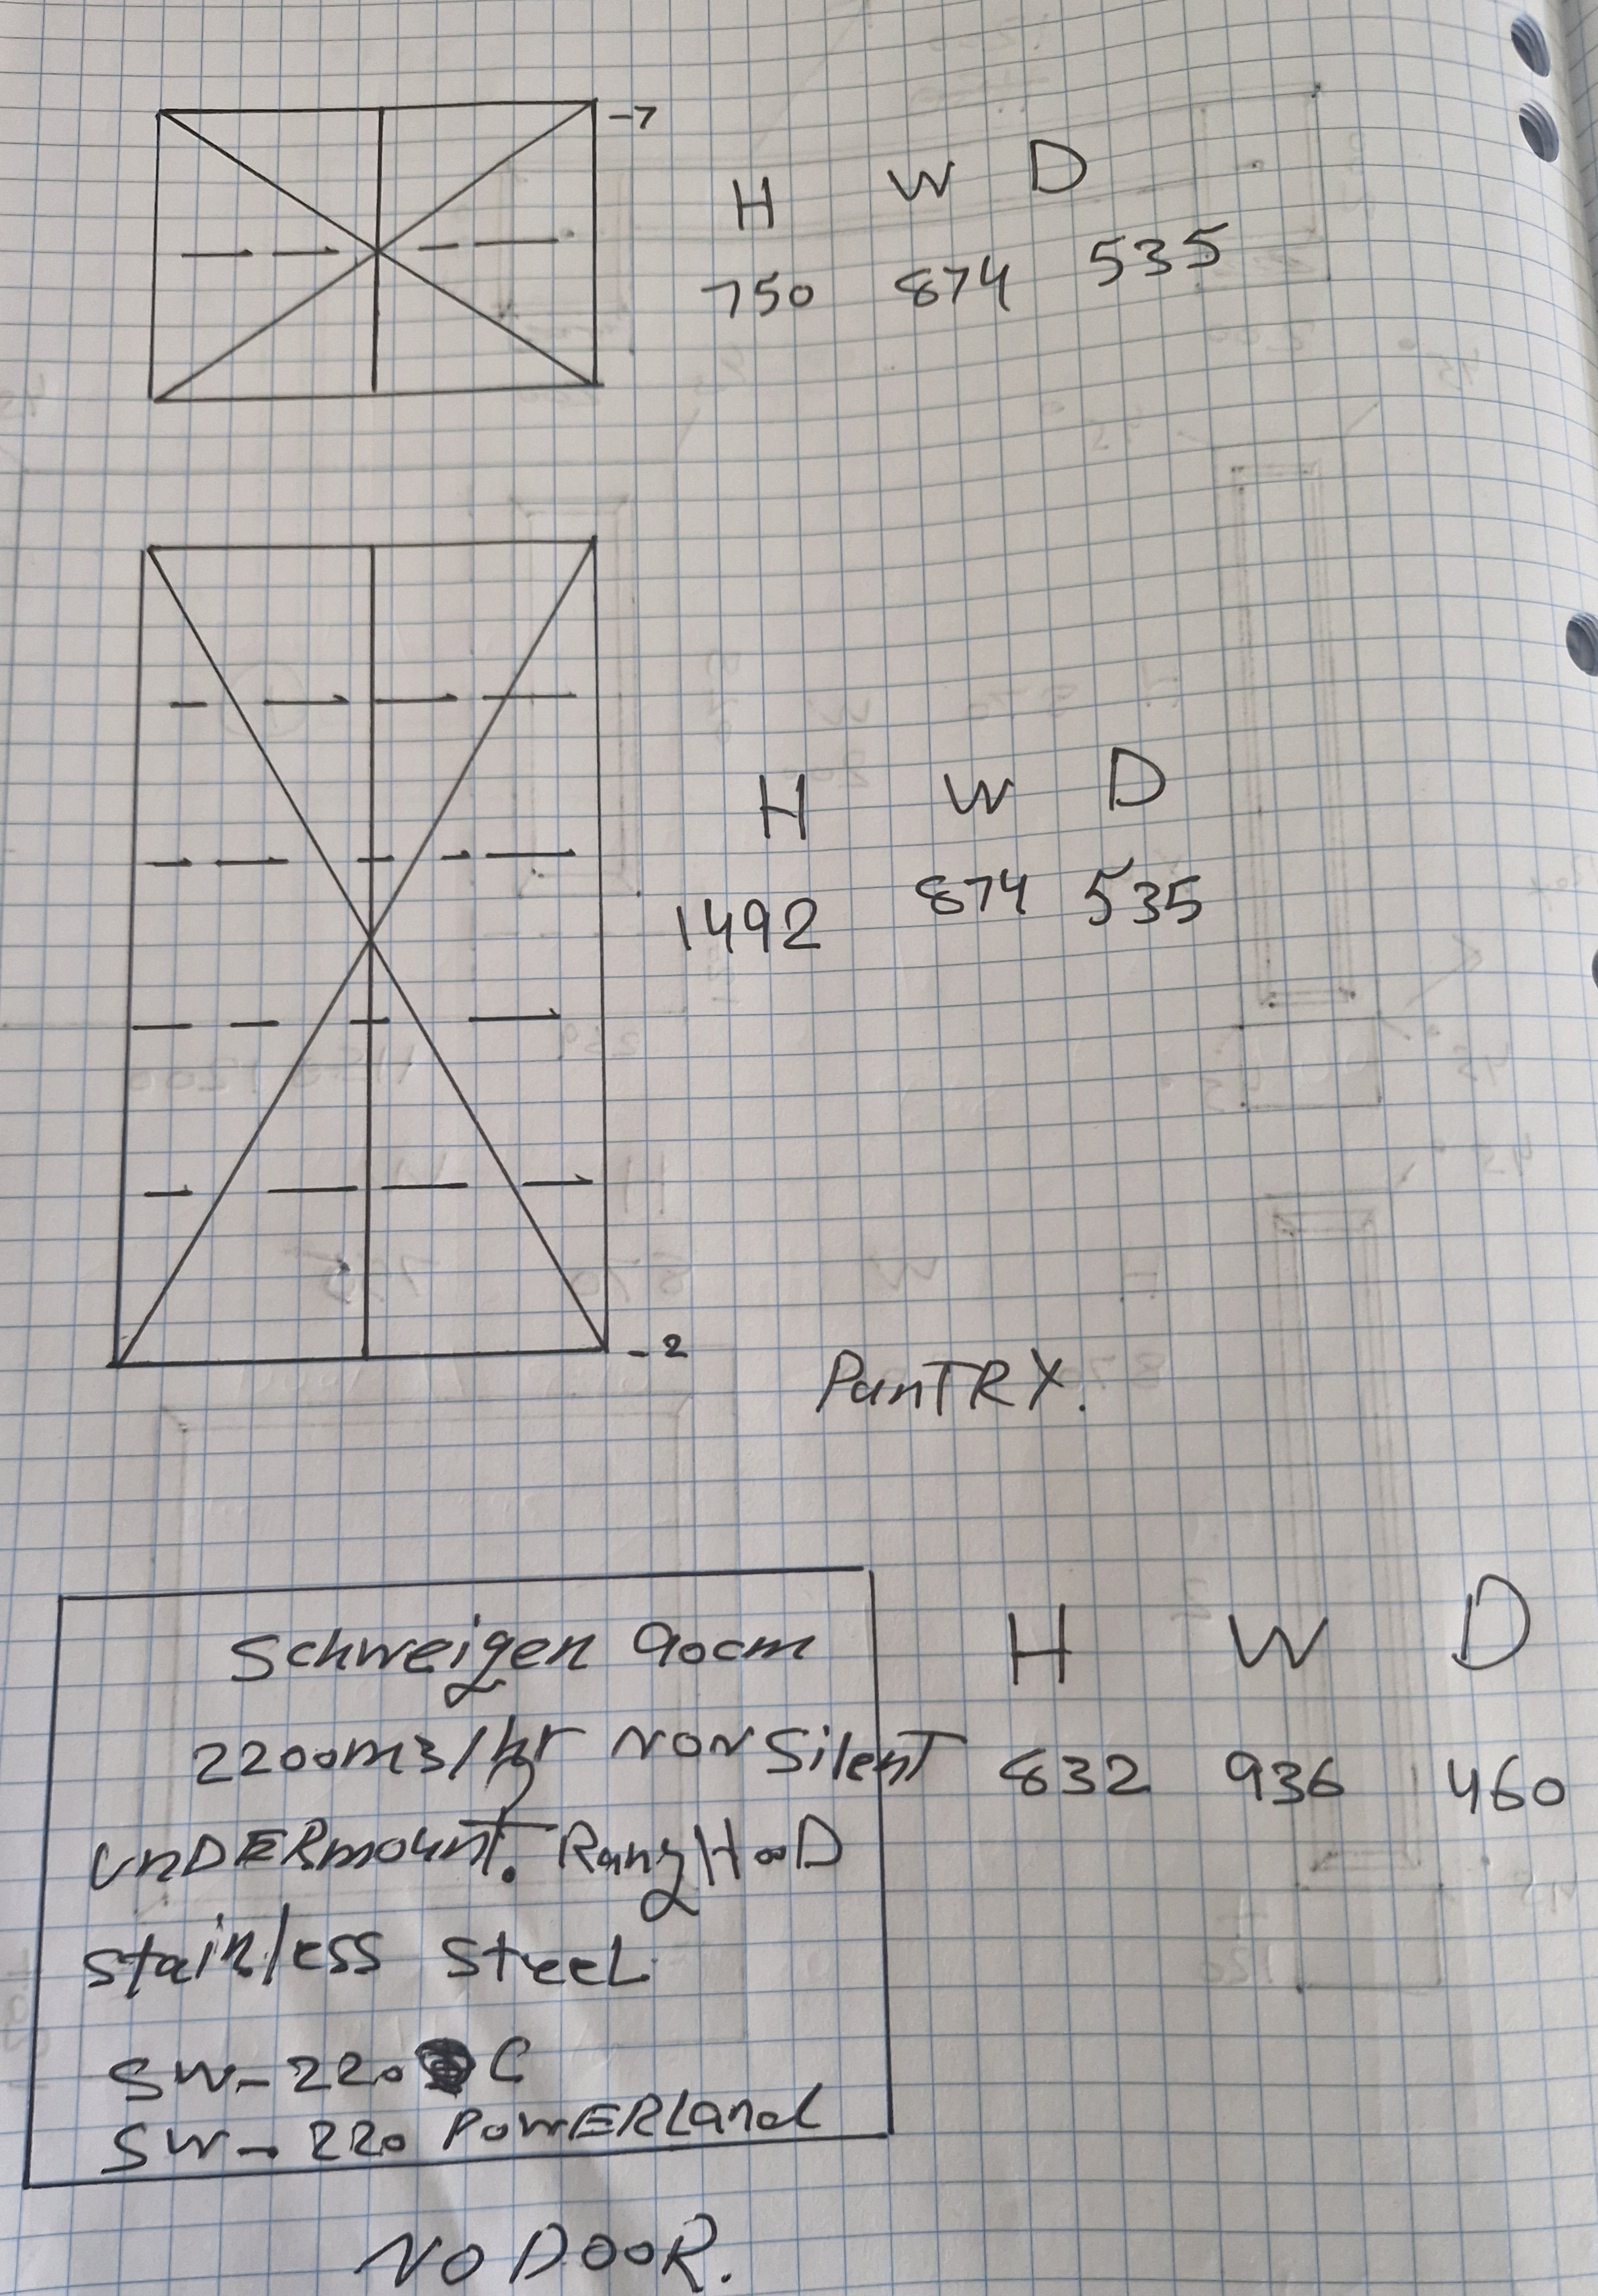 -7
H W D
750 874 535
H W D
1492 874 535
-2
PanTRY.
Schweigen 90cm
2200m3/hr NON Silent
UnDERmount. RangHooD
Stainless Steel
SW-220 C
SW-220 POWERLand
H W D
832 936 460
NO DOOR.